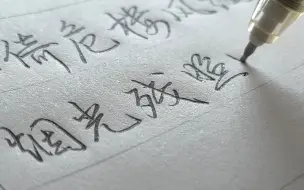 倚危楼风
烟光残照